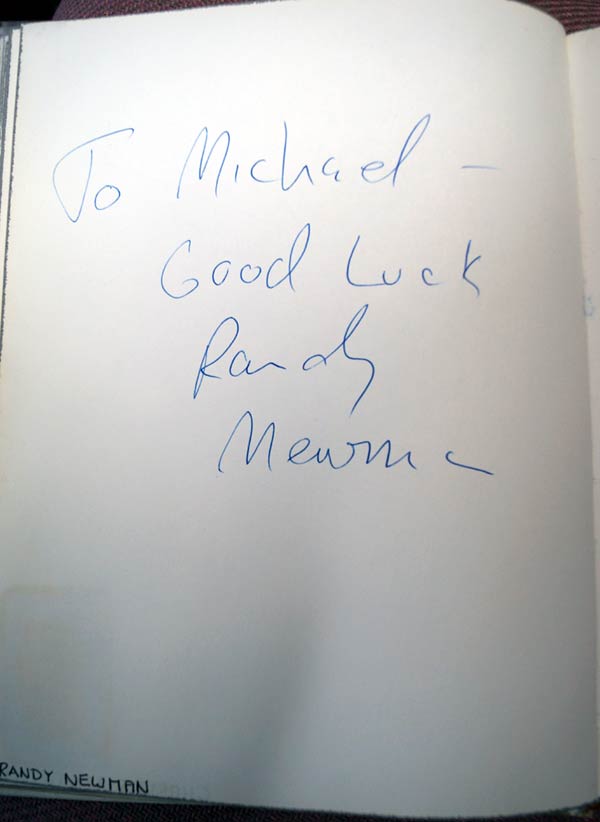 To Michael –
Good Luck
Randy
Newman
RANDY NEWMAN